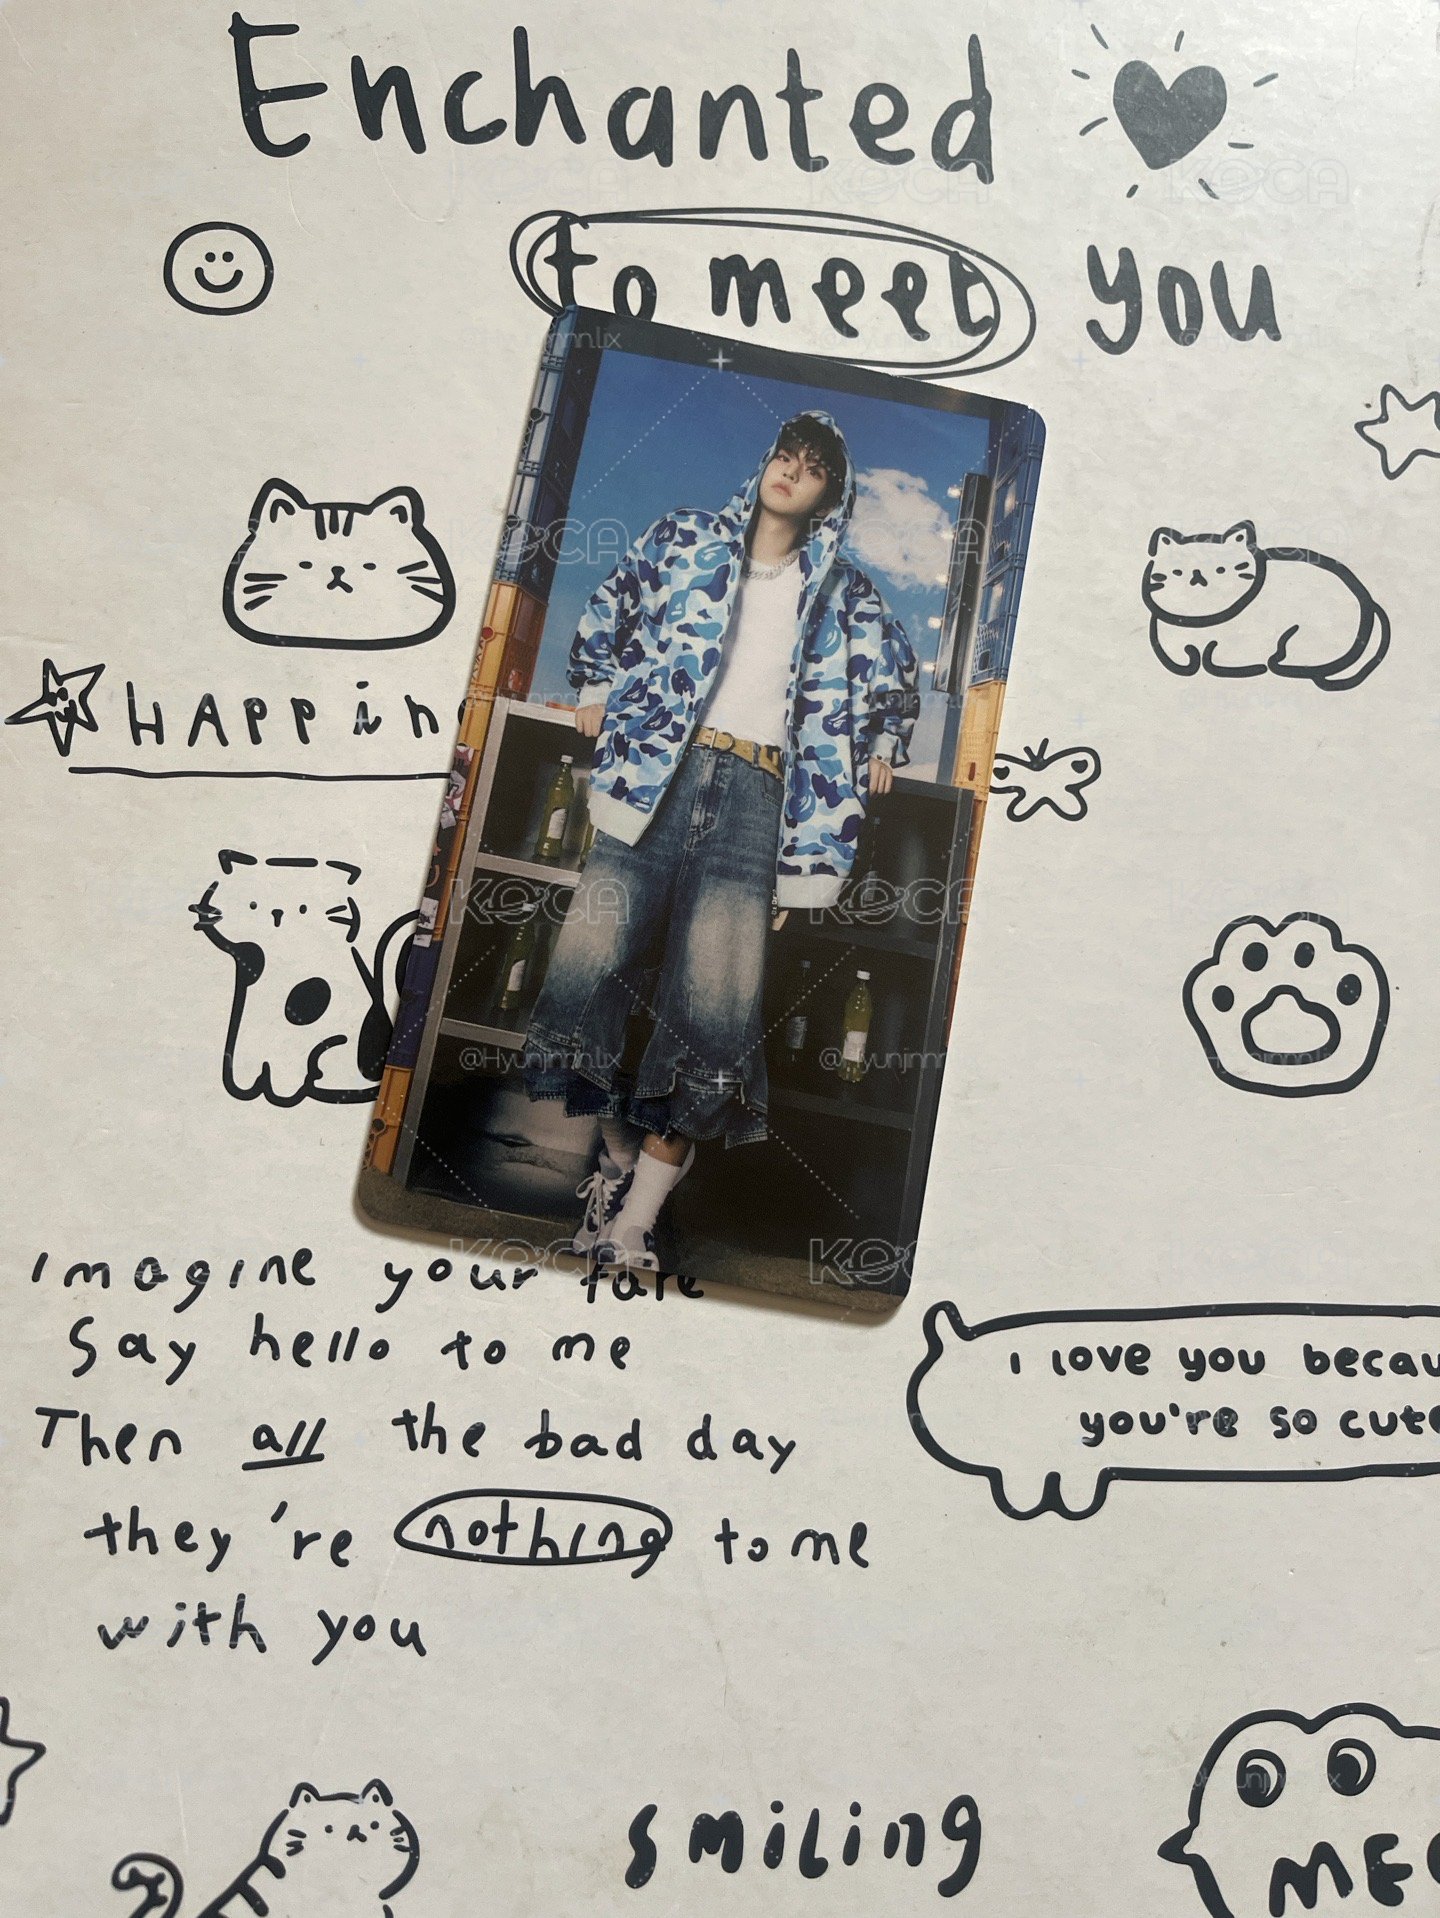 Enchanted
to meet you
HAPPin
Imagine your fate
Say hello to me
Then all the bad day
they're nothing to me
with you
I love you becau
you're so cute
smiling
MEO
KOCA
@Hyunjinnn.lix